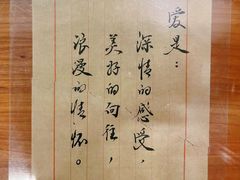 爱是：
深情的感受，
美好的向往，
浪漫的情怀。